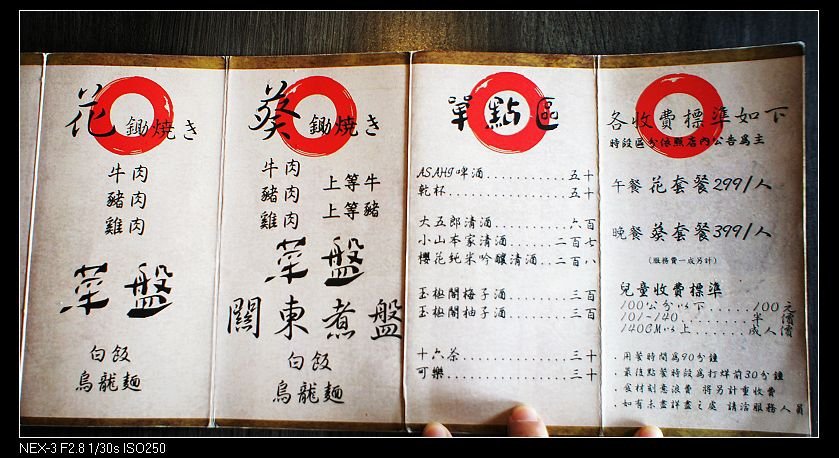 花 鋤焼き
牛肉
豬肉
雞肉
菜盤
白飯
烏龍麵
葵 鋤焼き
牛肉 上等牛
豬肉 上等豬
雞肉
菜盤
關東煮盤
白飯
烏龍麵
單點區
ASAHI啤酒............五十
乾杯..................五十
大五郎清酒............六百
小山本家清酒.......二百七
櫻花純米吟釀清酒..二百八
玉極閣梅子酒.........三百
玉極閣柚子酒.........三百
十六茶..................三十
可樂.....................三十
各收費標準如下
時段區分依照店內公告為主
午餐 花套餐299/人
晚餐 葵套餐399/人
(服務費一成另計)
兒童收費標準
100公分以下.......100元
101-140...........半價
140CM以上.......成人價
.用餐時間為90分鐘
.最後點餐時段為打烊前30分鐘
.食材刻意浪費 將另計重收費
.如有未盡詳盡之處 請洽服務人員
NEX-3 F2.8 1/30s ISO250